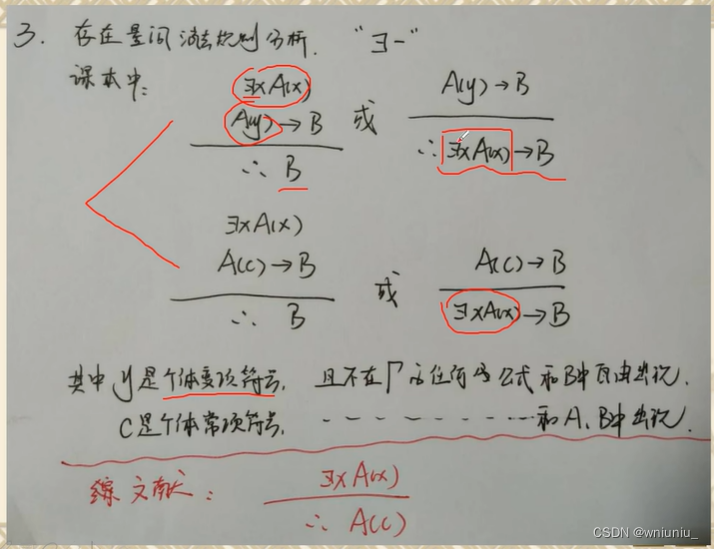 3. 存在量词消去规则分析. "∃-"
课本中:
∃xA(x)
A(y)→B
∴ B
或
A(y)→B
∴ ∃xA(x)→B
∃xA(x)
A(c)→B
∴ B
或
A(c)→B
∃xA(x)→B
其中y是个体变项符号, 且不在Γ的任何公式和B中自由出现.
c是个体常项符号, - - - - - - - - 和A、B中出现.
文献:
∃xA(x)
∴ A(c)
CSDN @wniuniu_